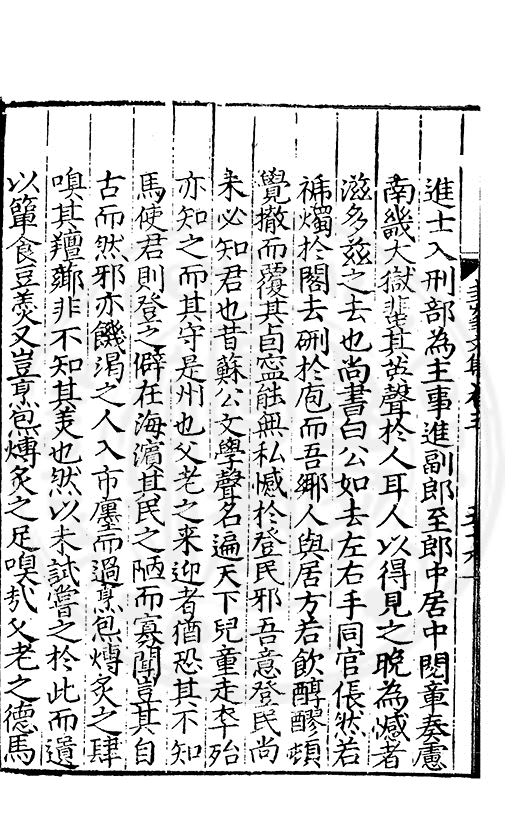 進士入刑部為主事進副郎至郎中居中閱章奏慮
南畿大獄蜚其英聲於人耳人以得見之晚為憾者
滋多茲之去也尚書白公如去左右手同官倀然若
燭於閣去硎於庖而吾鄉人與居方若飲醇醪頓
覺撤而覆其卣寧能無私憾於登民邪吾意登民尚
未必知君也昔蘇公文學聲名遍天下兒童走卒殆
亦知之而其守是州也父老之來迎者猶恐其不知
馬使君則登之僻在海濱其民之陋而寡聞豈其自
古而然邪亦饑渴之人入市廛而過烹炰煿炙之肆
嗅其羶薌非不知其美也然以未試嘗之於此而遺
以簞食豆羹又豈烹炰煿炙之足嗅哉父老之德馬